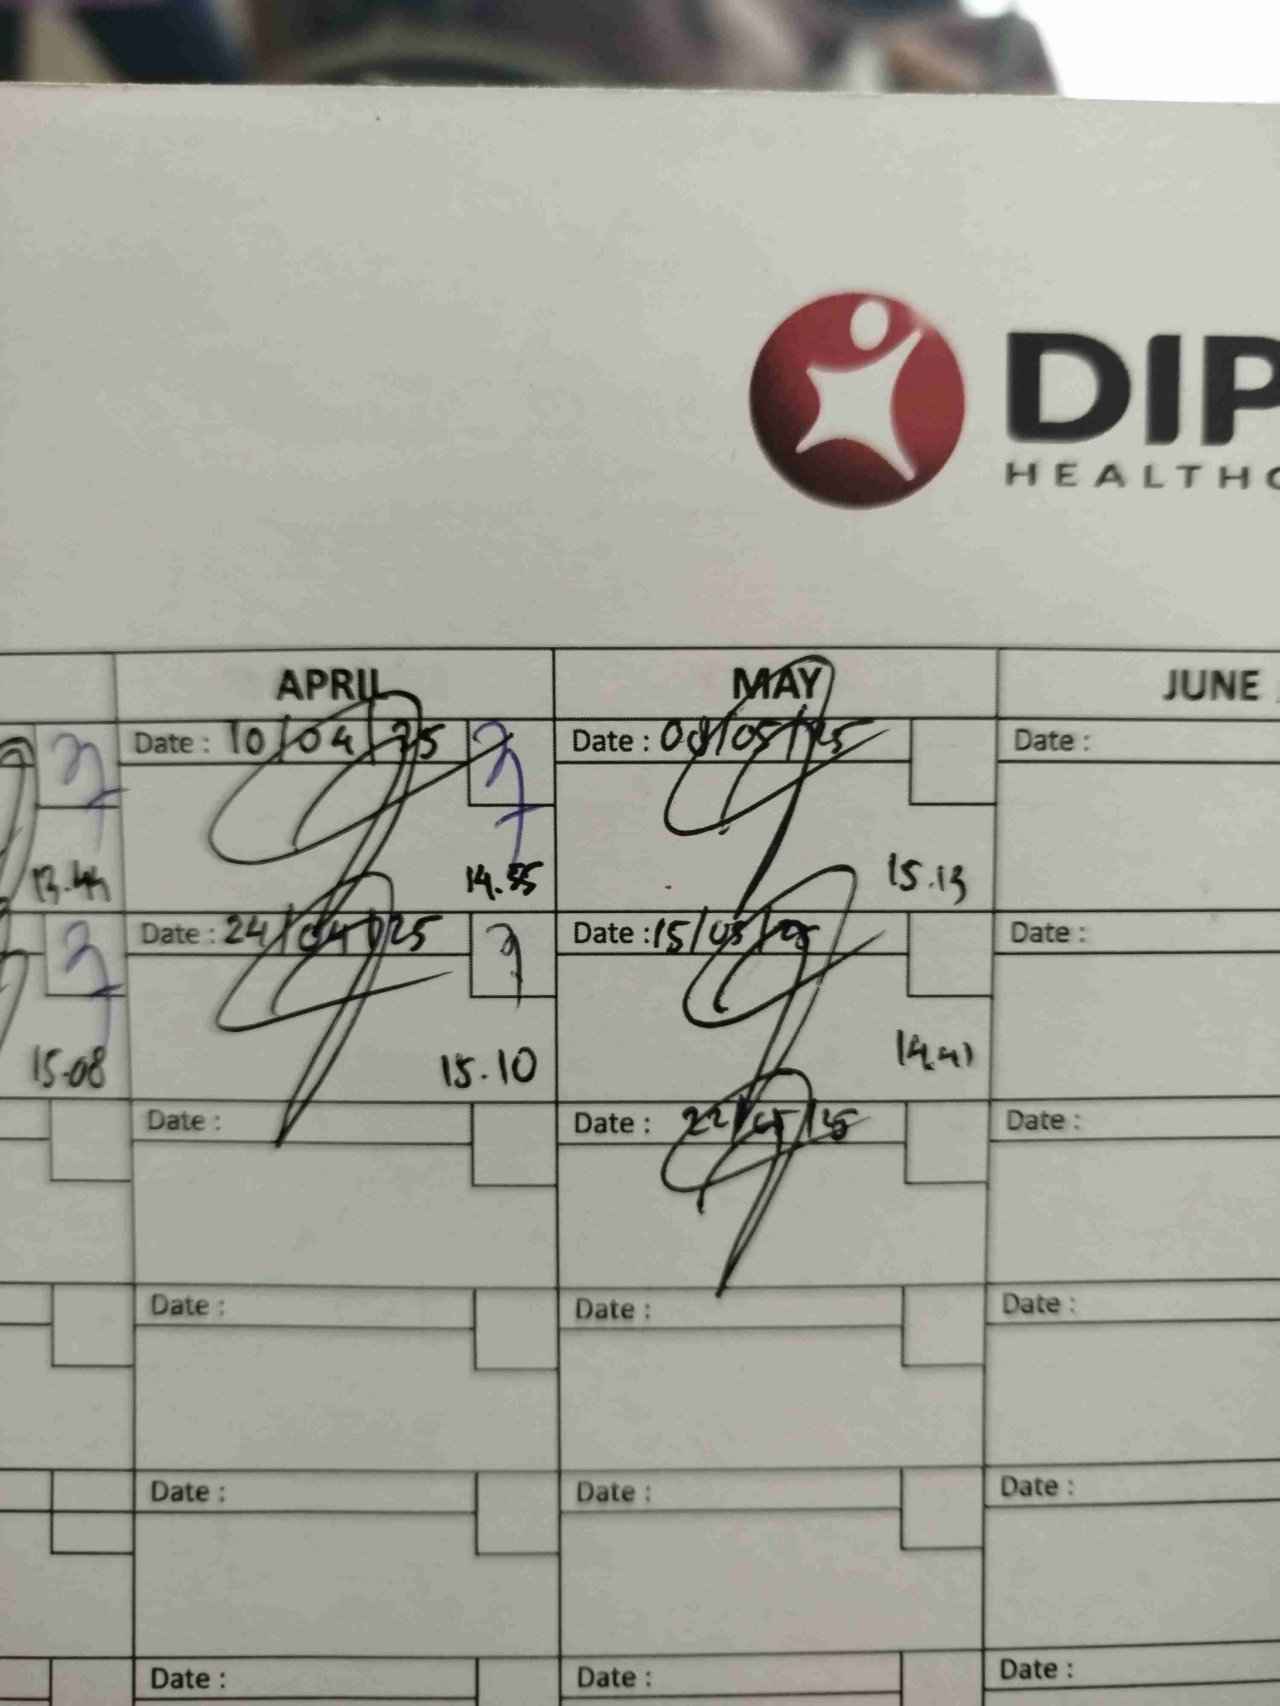 DIP
HEALTHC
APRIL MAY JUNE
Date : 10/04/25 Date : 08/05/25 Date :
13.44 14.55 15.13
Date : 24/04/25 Date : 15/05/25 Date :
15.08 15.10 14.41
Date : Date : 22/05/25 Date :
Date : Date : Date :
Date : Date : Date :
Date : Date : Date :